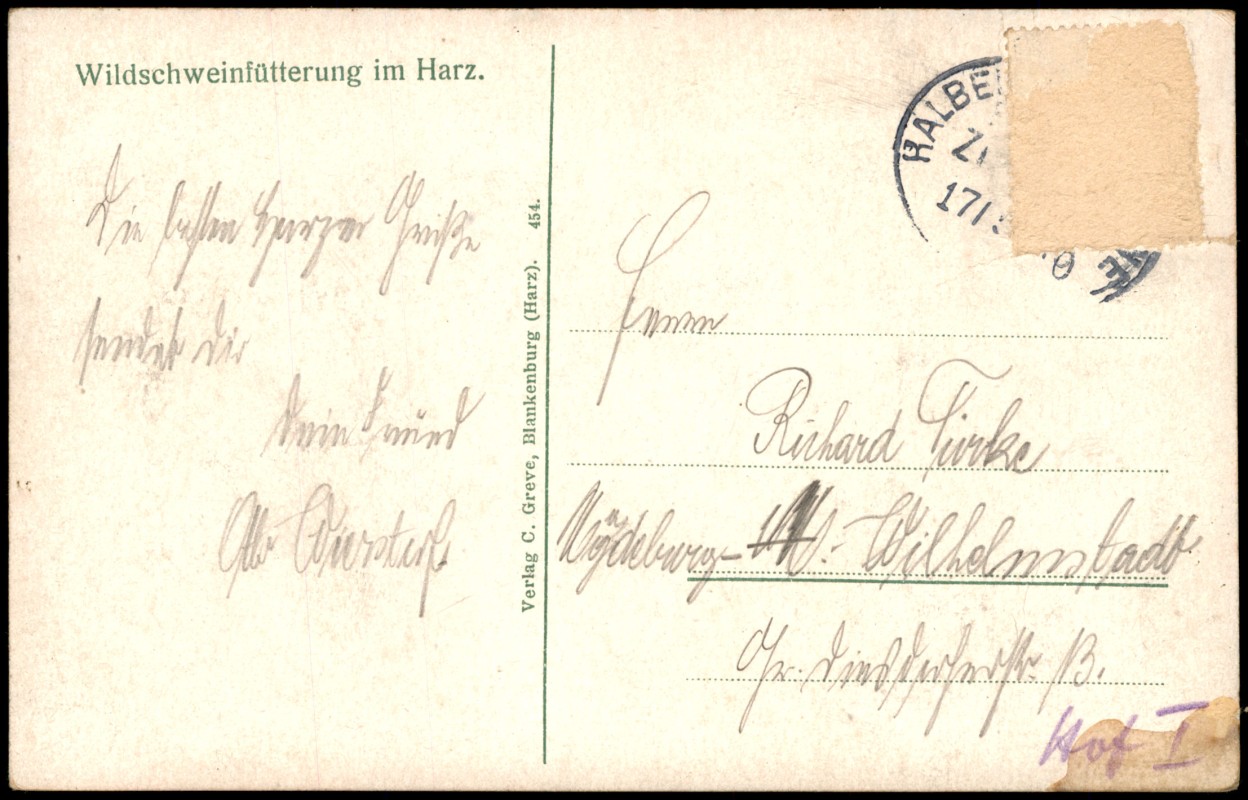 Wildschweinfütterung im Harz.
Die besten Harzer Grüße
sendet dir
dein Freund
Otto
Verlag C. Greve, Blankenburg (Harz). 454.
HALBE
17/3
Herrn
Richard Türke
Magdeburg - W. - Wilhelmstadt
Gr. Diesdorferstr.
Hof I